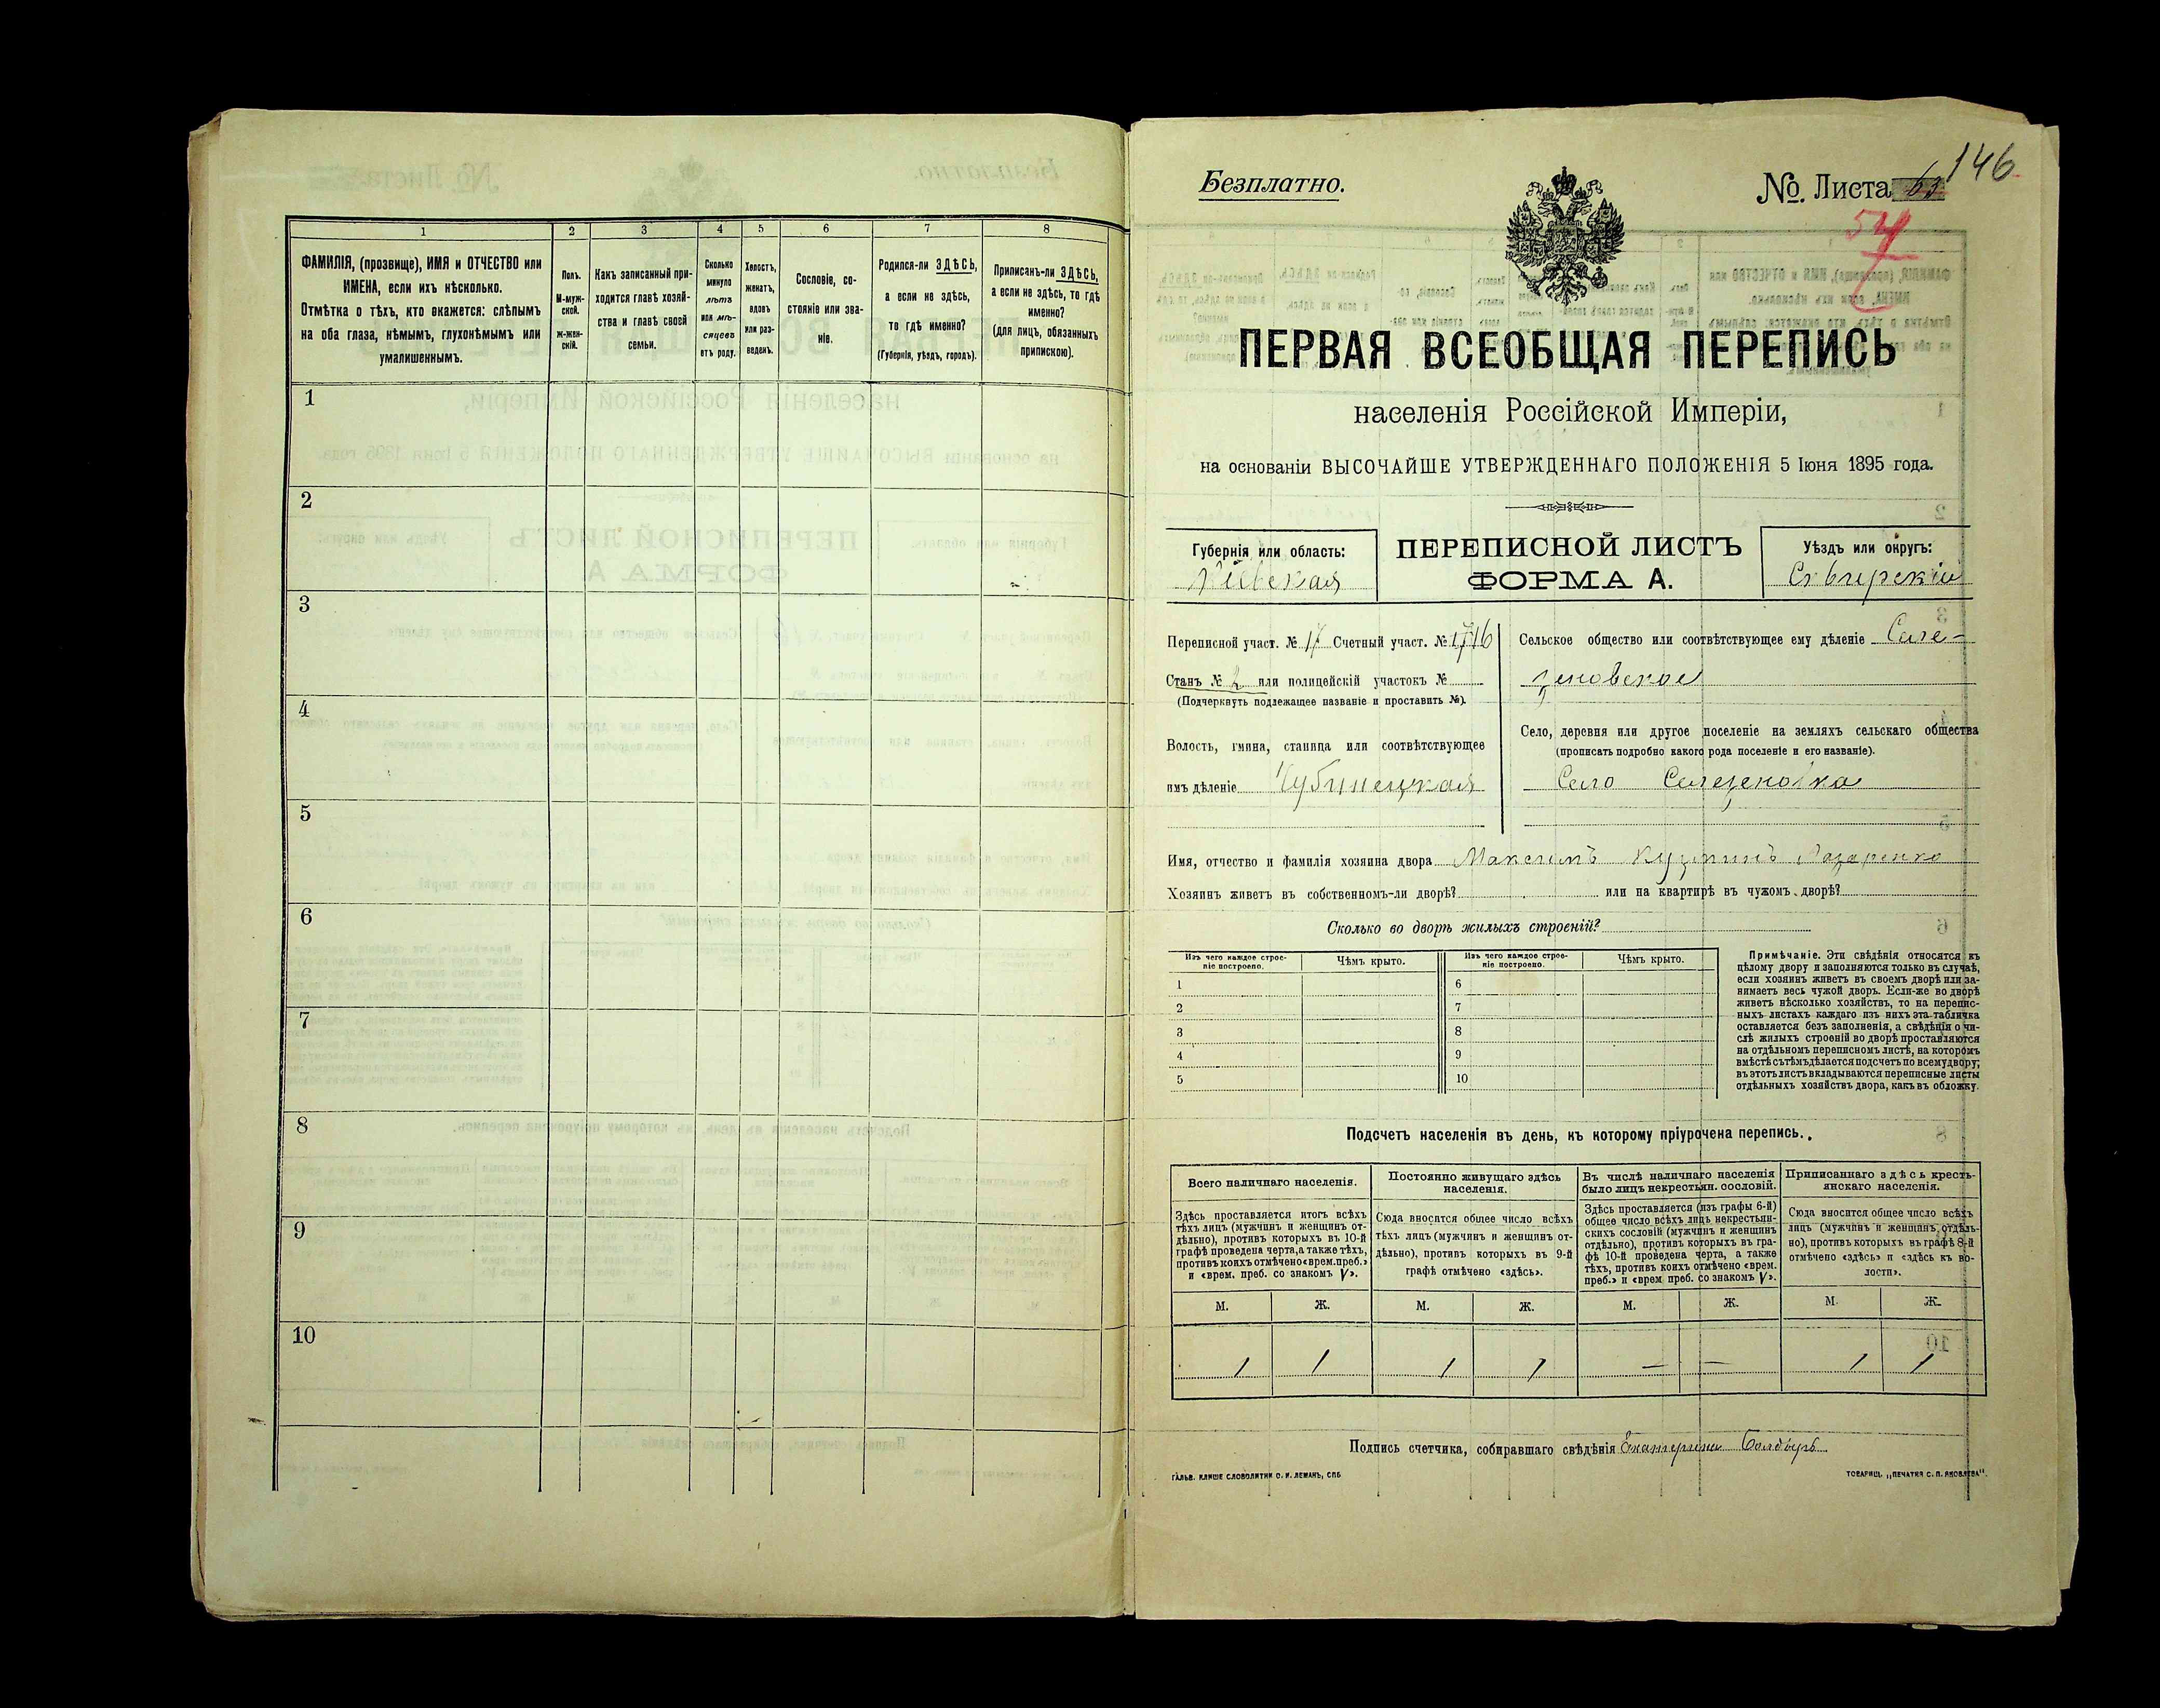 1
2
3
4
5
6
7
8
ФАМИЛІЯ, (прозвище), ИМЯ и ОТЧЕСТВО или
ИМЕНА, если ихъ нѣсколько.
Отмѣтка о тѣхъ, кто окажется: слѣпымъ
на оба глаза, нѣмымъ, глухонѣмымъ или
умалишеннымъ.
Полъ.
М-муж-
ской.
ж-жен-
скій.
Какъ записанный при-
ходится главѣ хозяй-
ства и главѣ своей
семьи.
Сколько
минуло
лѣтъ
или мѣ-
сяцевъ
отъ роду.
Холостъ,
женатъ,
вдовъ
или раз-
веденъ.
Сословіе, со-
стояніе или зва-
ніе.
Родился-ли ЗДѢСЬ,
а если не здѣсь,
то гдѣ именно?
(Губернія, уѣздъ, городъ).
Приписанъ-ли ЗДѢСЬ,
а если не здѣсь, то гдѣ
именно?
(для лицъ, обязанныхъ
припискою).
1
2
3
4
5
6
7
8
9
10
Безплатно.
№. Листа 63
146
54
ПЕРВАЯ ВСЕОБЩАЯ ПЕРЕПИСЬ
населенія Россійской Имперіи,
на основаніи ВЫСОЧАЙШЕ УТВЕРЖДЕННАГО ПОЛОЖЕНІЯ 5 Іюня 1895 года.
Губернія или область:
Кіевская
ПЕРЕПИСНОЙ ЛИСТЪ
ФОРМА А.
Уѣздъ или округъ:
Сквирскій
Переписной участ. № 17 Счетный участ. № 16
Станъ № 2 или полицейскій участокъ №
(Подчеркнуть подлежащее названіе и проставить №).
Волость, гмина, станица или соотвѣтствующее
имъ дѣленіе Чубинецкая
Сельское общество или соотвѣтствующее ему дѣленіе Селе-
зеновское
Село, деревня или другое поселеніе на земляхъ сельскаго общества
(прописать подробно какого рода поселеніе и его названіе).
Село Селезеновка
Имя, отчество и фамилія хозяина двора Максимъ Кузминъ Лазаренко
Хозяинъ живетъ въ собственномъ-ли дворѣ? или на квартирѣ въ чужомъ дворѣ?
Сколько во дворѣ жилыхъ строеній?
Изъ чего каждое строе-
ніе построено.
Чѣмъ крыто.
Изъ чего каждое строе-
ніе построено.
Чѣмъ крыто.
1
2
3
4
5
6
7
8
9
10
Примѣчаніе. Эти свѣдѣнія относятся къ
цѣлому двору и заполняются только въ случаѣ,
если хозяинъ живетъ въ своемъ дворѣ или за-
нимаетъ весь чужой дворъ. Если-же во дворѣ
живетъ нѣсколько хозяйствъ, то на перепис-
ныхъ листахъ каждаго изъ нихъ эта табличка
оставляется безъ заполненія, а свѣдѣнія о чи-
слѣ жилыхъ строеній во дворѣ проставляются
на отдѣльномъ переписномъ листѣ, на которомъ
вмѣстѣ съ тѣмъ дѣлается подсчетъ по всему двору;
въ этотъ листъ вкладываются переписные листы
отдѣльныхъ хозяйствъ двора, какъ въ обложку.
Подсчетъ населенія въ день, къ которому пріурочена перепись.
Всего наличнаго населенія.
Здѣсь проставляется итогъ всѣхъ
тѣхъ лицъ (мужчинъ и женщинъ от-
дѣльно), противъ которыхъ въ 10-й
графѣ проведена черта, а также тѣхъ,
противъ коихъ отмѣчено «врем. преб.»
и «врем. преб. со знакомъ V».
Постоянно живущаго здѣсь
населенія.
Сюда вносится общее число всѣхъ
тѣхъ лицъ (мужчинъ и женщинъ от-
дѣльно), противъ которыхъ въ 9-й
графѣ отмѣчено «здѣсь».
Въ числѣ наличнаго населенія
было лицъ некрестьян. сословій.
Здѣсь проставляется (изъ графы 6-й)
общее число всѣхъ лицъ некрестьян-
скихъ сословій (мужчинъ и женщинъ
отдѣльно), противъ которыхъ въ гра-
фѣ 10-й проведена черта, а также
тѣхъ, противъ коихъ отмѣчено «врем.
преб.» и «врем. преб. со знакомъ V».
Приписаннаго здѣсь кресть-
янскаго населенія.
Сюда вносится общее число всѣхъ
лицъ (мужчинъ и женщинъ, отдѣль-
но), противъ которыхъ въ графѣ 8-й
отмѣчено «здѣсь» и «здѣсь къ во-
лости».
М. Ж. М. Ж. М. Ж. М. Ж.
1 1 1 1 — — 1 1
Подпись счетчика, собиравшаго свѣдѣнія Екатерина
ГАЛЬВ. КЛИШЕ СЛОВОЛИТНИ О. И. ЛЕМАНЪ, СПБ
ТОВАРИЩ. „ПЕЧАТНЯ С. П. ЯКОВЛЕВА".